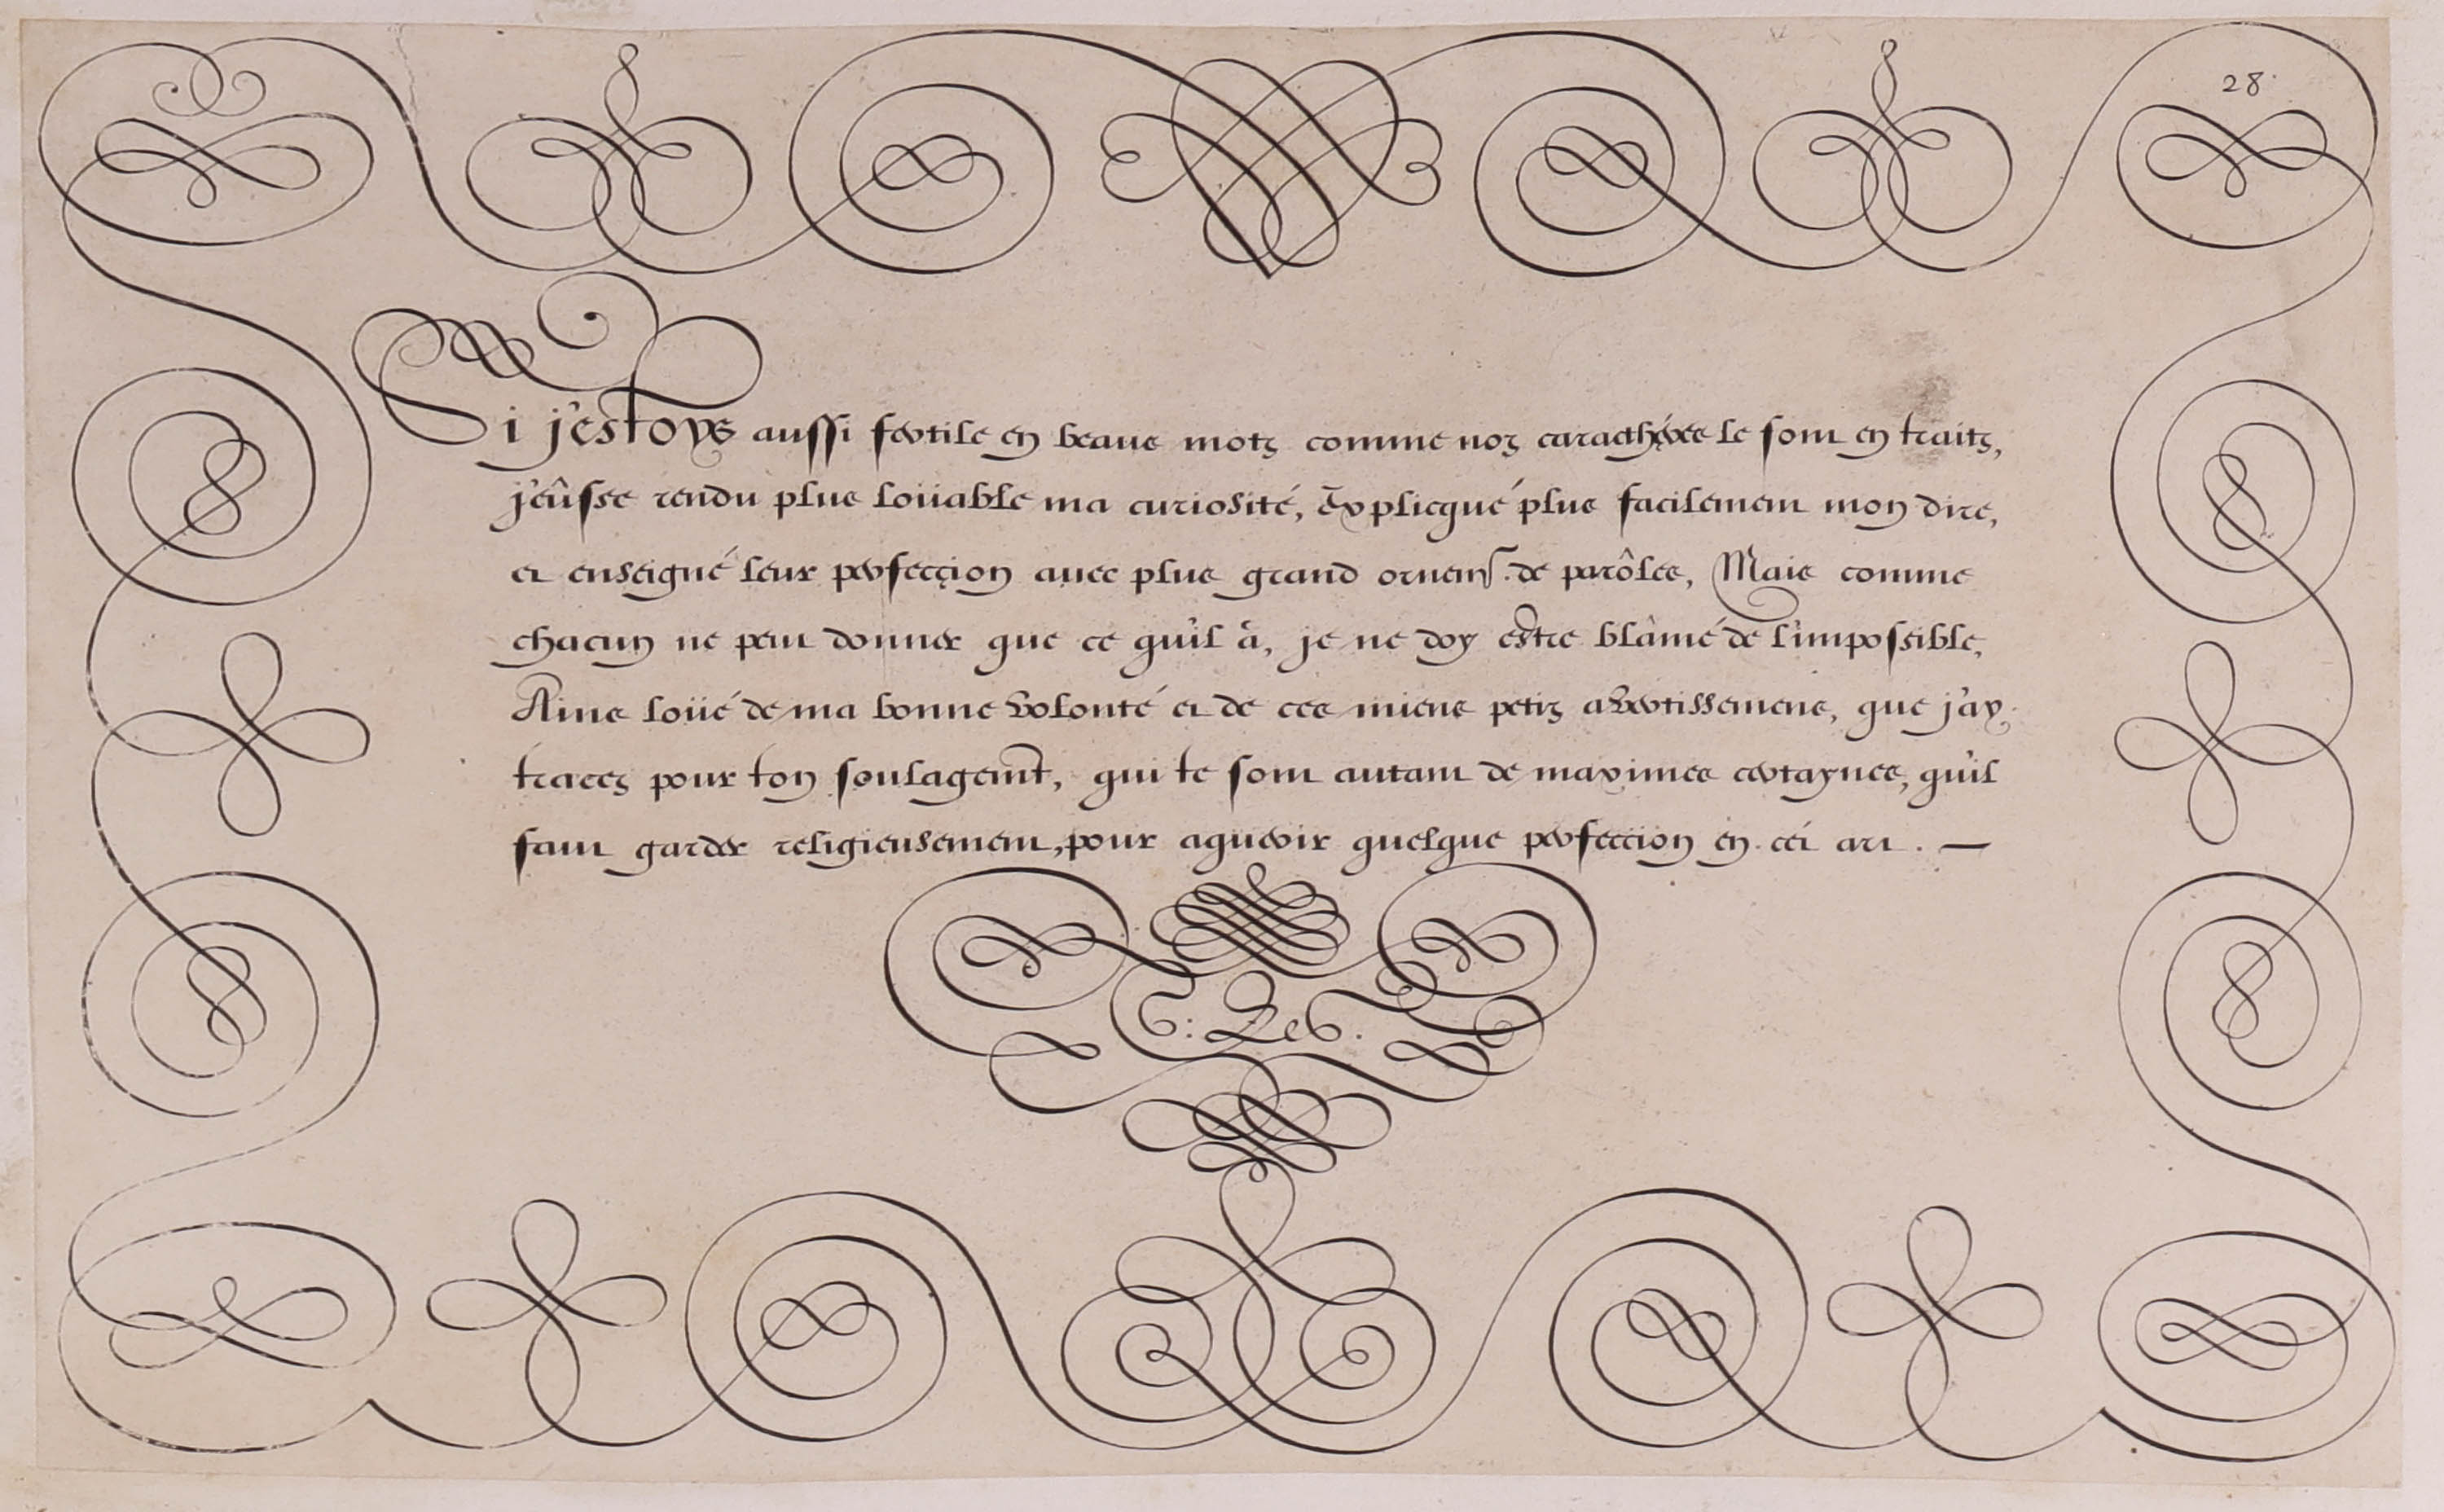 28.
Si j'estoys aussi fertile en beaus mots comme noz caracthéres le sont en traitz,
j'eûsse rendu plus loüable ma curiosité, Explicqué plus facilement mon dire,
et enseigné leur perfecçion auec plus grand ornemt. de parôles, Mais comme
chacun ne peut donner que ce qu'il à, je ne doy estre blâmé de l'impossible,
Ains loüé de ma bonne volonté et de ces miens petiz advertissemens, que j'ay
tracez pour ton soulagemt, qui te sont autant de maximes certaynes, qu'il
faut garder religieusement, pour aquerir quelque perfection en cét art. —